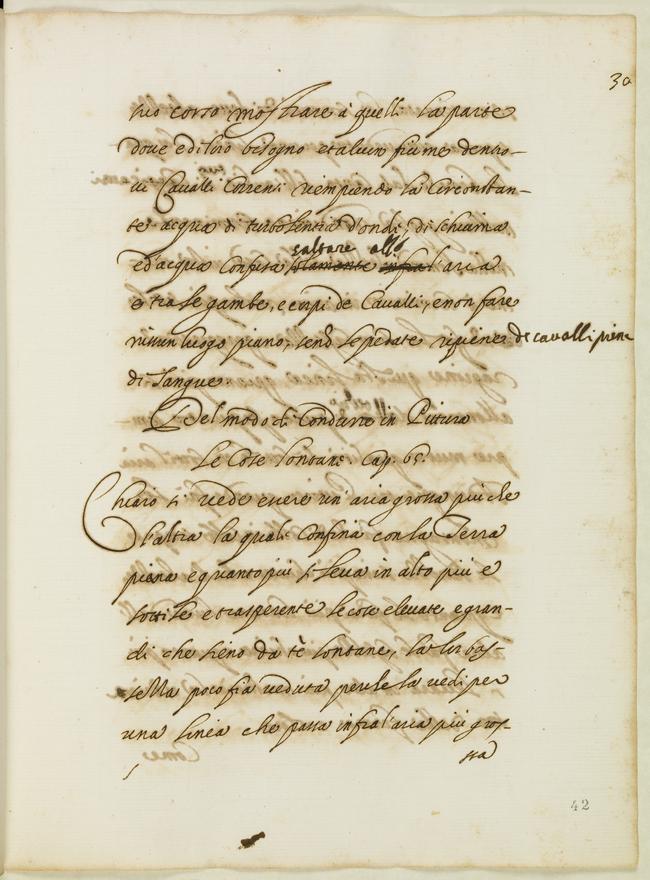 30
suo corso mostrare à quelli la parte
doue ed il suo bisogno et alcun fiume dentro-
ui Cavalli Correnti riempiendo la Circonstan-
te acqua di turbolentia d'onde, di schiuma
saltare all'
ed'acqua Confusa solamente infra l'aria
e tra le gambe, e corpi de Cavalli, e non fare
nissun luogo piano, se non le pedate ripiene de cavalli piene
di Sangue.
Del modo di Condurre in Pittura
Le Cose lontane. Cap. 65.
Chiaro si vede essere un'aria grossa più che
l'altra la quale Confina con la Terra
piana e quanto più si leva in alto più è
sottile e trasparente le cose elevate e gran-
di che sieno da tè lontane, la lor bas-
sezza poco fia veduta perche la vedi per
una linea che passa infra l'aria più gros-
sa
42